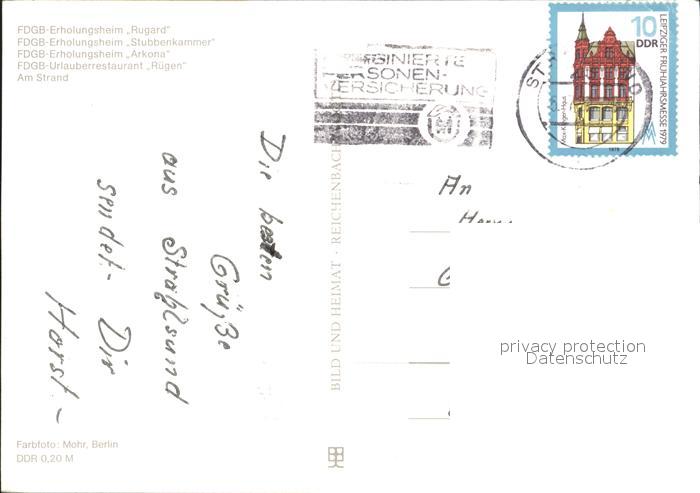 FDGB-Erholungsheim „Rugard"
FDGB-Erholungsheim „Stubbenkammer"
FDGB-Erholungsheim „Arkona"
FDGB-Urlauberrestaurant „Rügen"
Am Strand
Die besten
Grüße
aus Stralsund
sendet - Dir
Horst -
Farbfoto: Mohr, Berlin
DDR 0,20 M
BILD UND HEIMAT · REICHENBACH
BINIERTE
SONEN-
VERSICHERUNG
10
DDR
LEIPZIGER FRÜHJAHRSMESSE 1979
Max-Klinger-Haus
1979
An
Herrn
privacy protection
Datenschutz